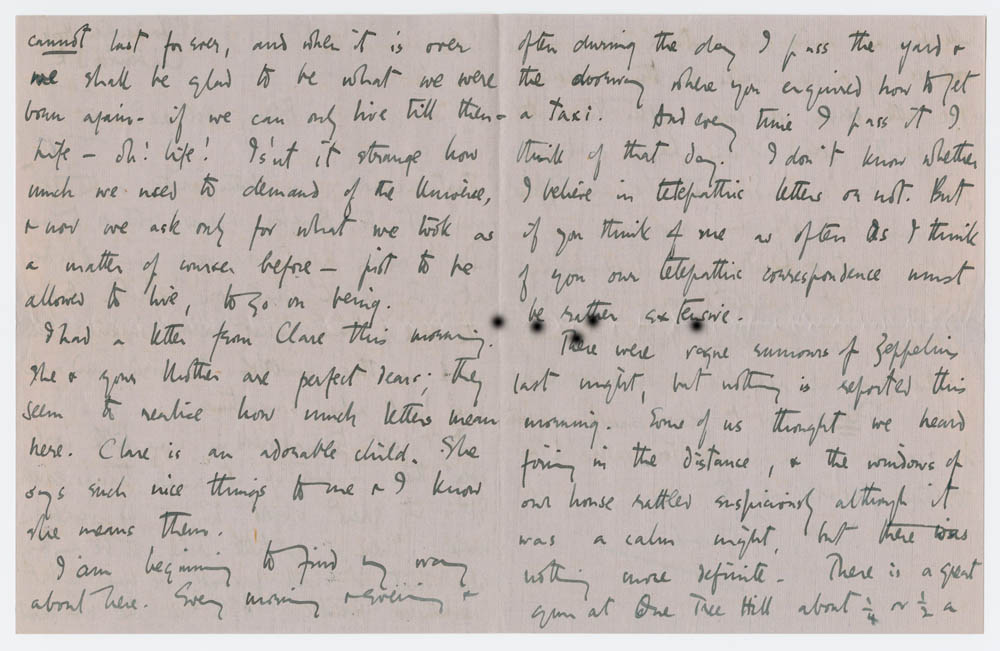 cannot last for ever, and when it is over
we shall be glad to be what we were
born again - if we can only live till then -
Life - oh! life! Is'nt it strange how
much we used to demand of the Universe,
& now we ask only for what we took as
a matter of course before - just to be
allowed to live, to go on being.
I had a letter from Clare this morning.
She & your Mother are perfect dears; they
seem to realise how much letters mean
here. Clare is an adorable child. She
says such nice things to me & I know
she means them.
I am beginning to find my way
about here. Every morning & evening &
often during the day I pass the yard &
the doorway where you enquired how to get
a taxi. And every time I pass it I
think of that day. I don't know whether
I believe in telepathic letters or not. But
if you think of me as often as I think
of you our telepathic correspondence must
be rather extensive.
There were vague rumours of Zeppelins
last night, but nothing is reported this
morning. Some of us thought we heard
firing in the distance, & the windows of
our house rattled suspiciously although it
was a calm night, but there was
nothing more definite - There is a great
gun at One Tree Hill about ¼ or ½ a